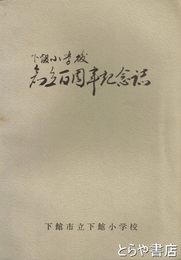 下館小学校
創立百周年記念誌
下館市立下館小学校
古書
とらや書店